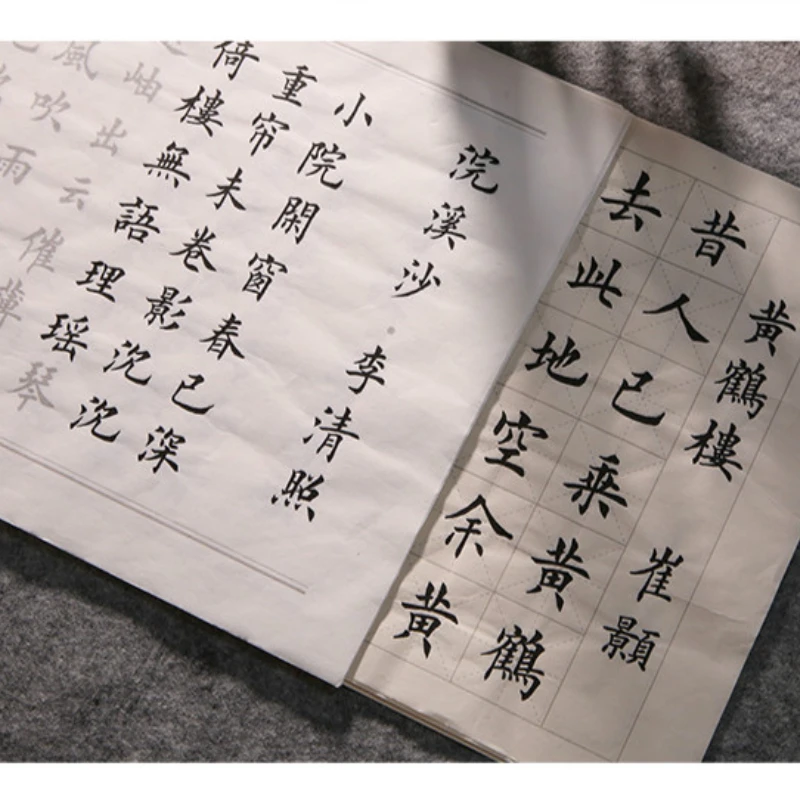 黄鶴樓 崔顥
昔人已乘黄鶴
去此地空余黄
浣溪沙·李清照
小院閑窗春已深
重帘未卷影沈沈
倚樓無語理瑶琴
岫出云催
風吹雨